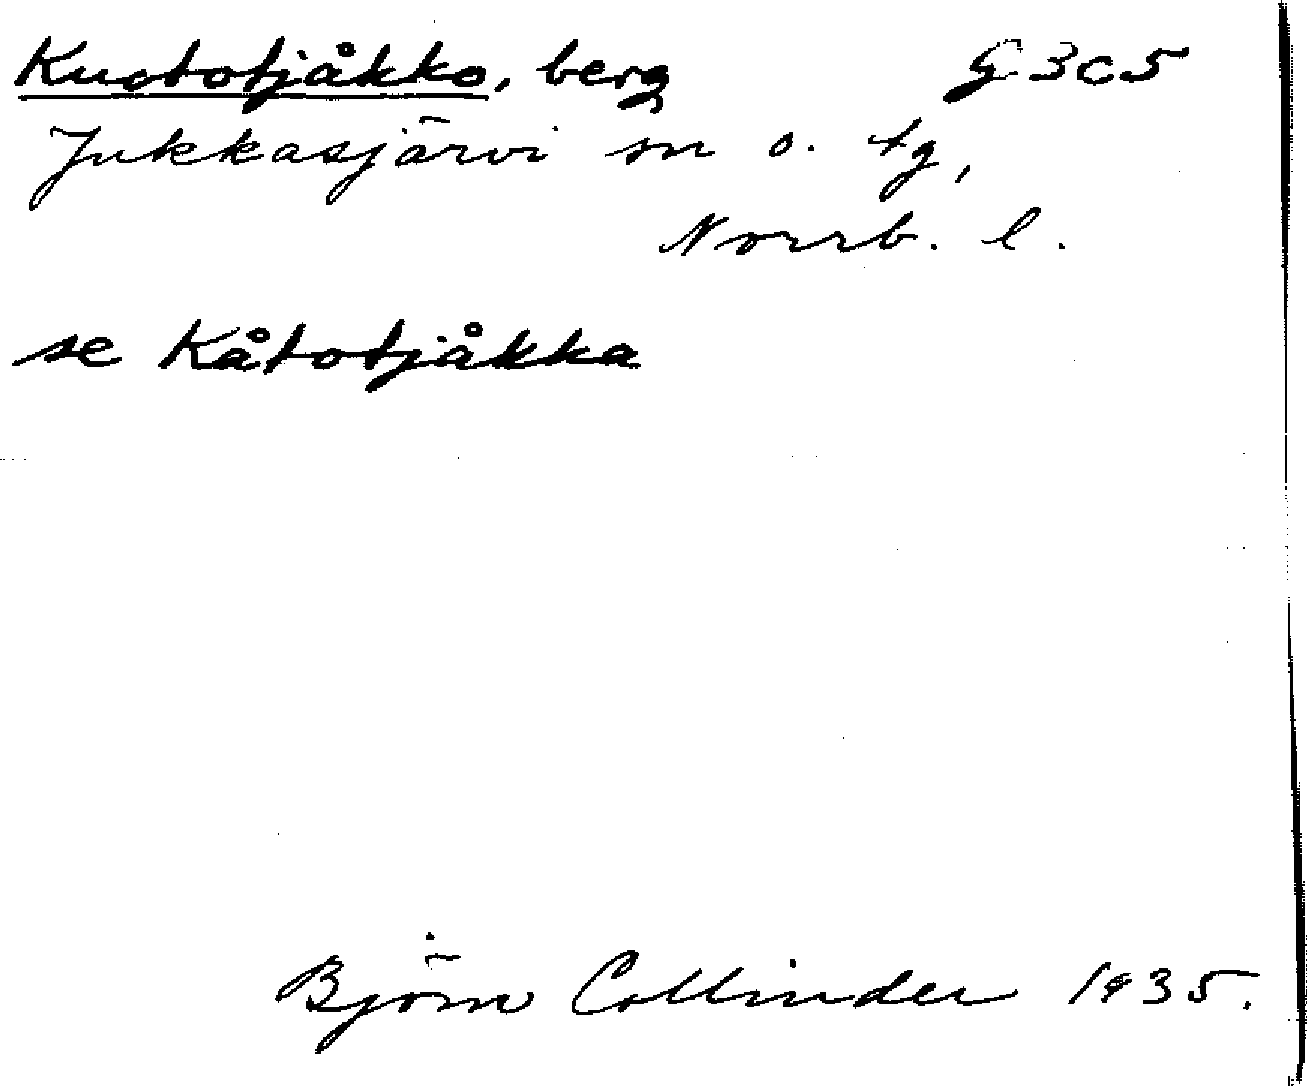 Kuototjåkko, berg G 3c5
Jukkasjärvi sn o. tg,
Norrb. l.
se Kåtotjåkka
Björn Collinder 1935.